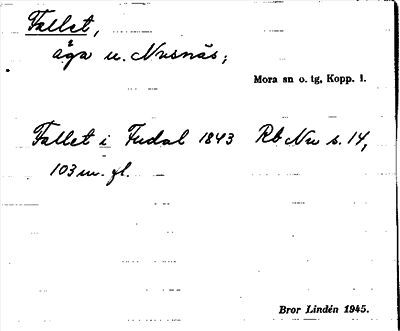 Fallet,
åga u. Nusnäs;
Mora sn o. tg, Kopp. l.
Fallet i Fudal 1843 Rb Nu s. 14,
103 m. fl.
Bror Lindén 1945.